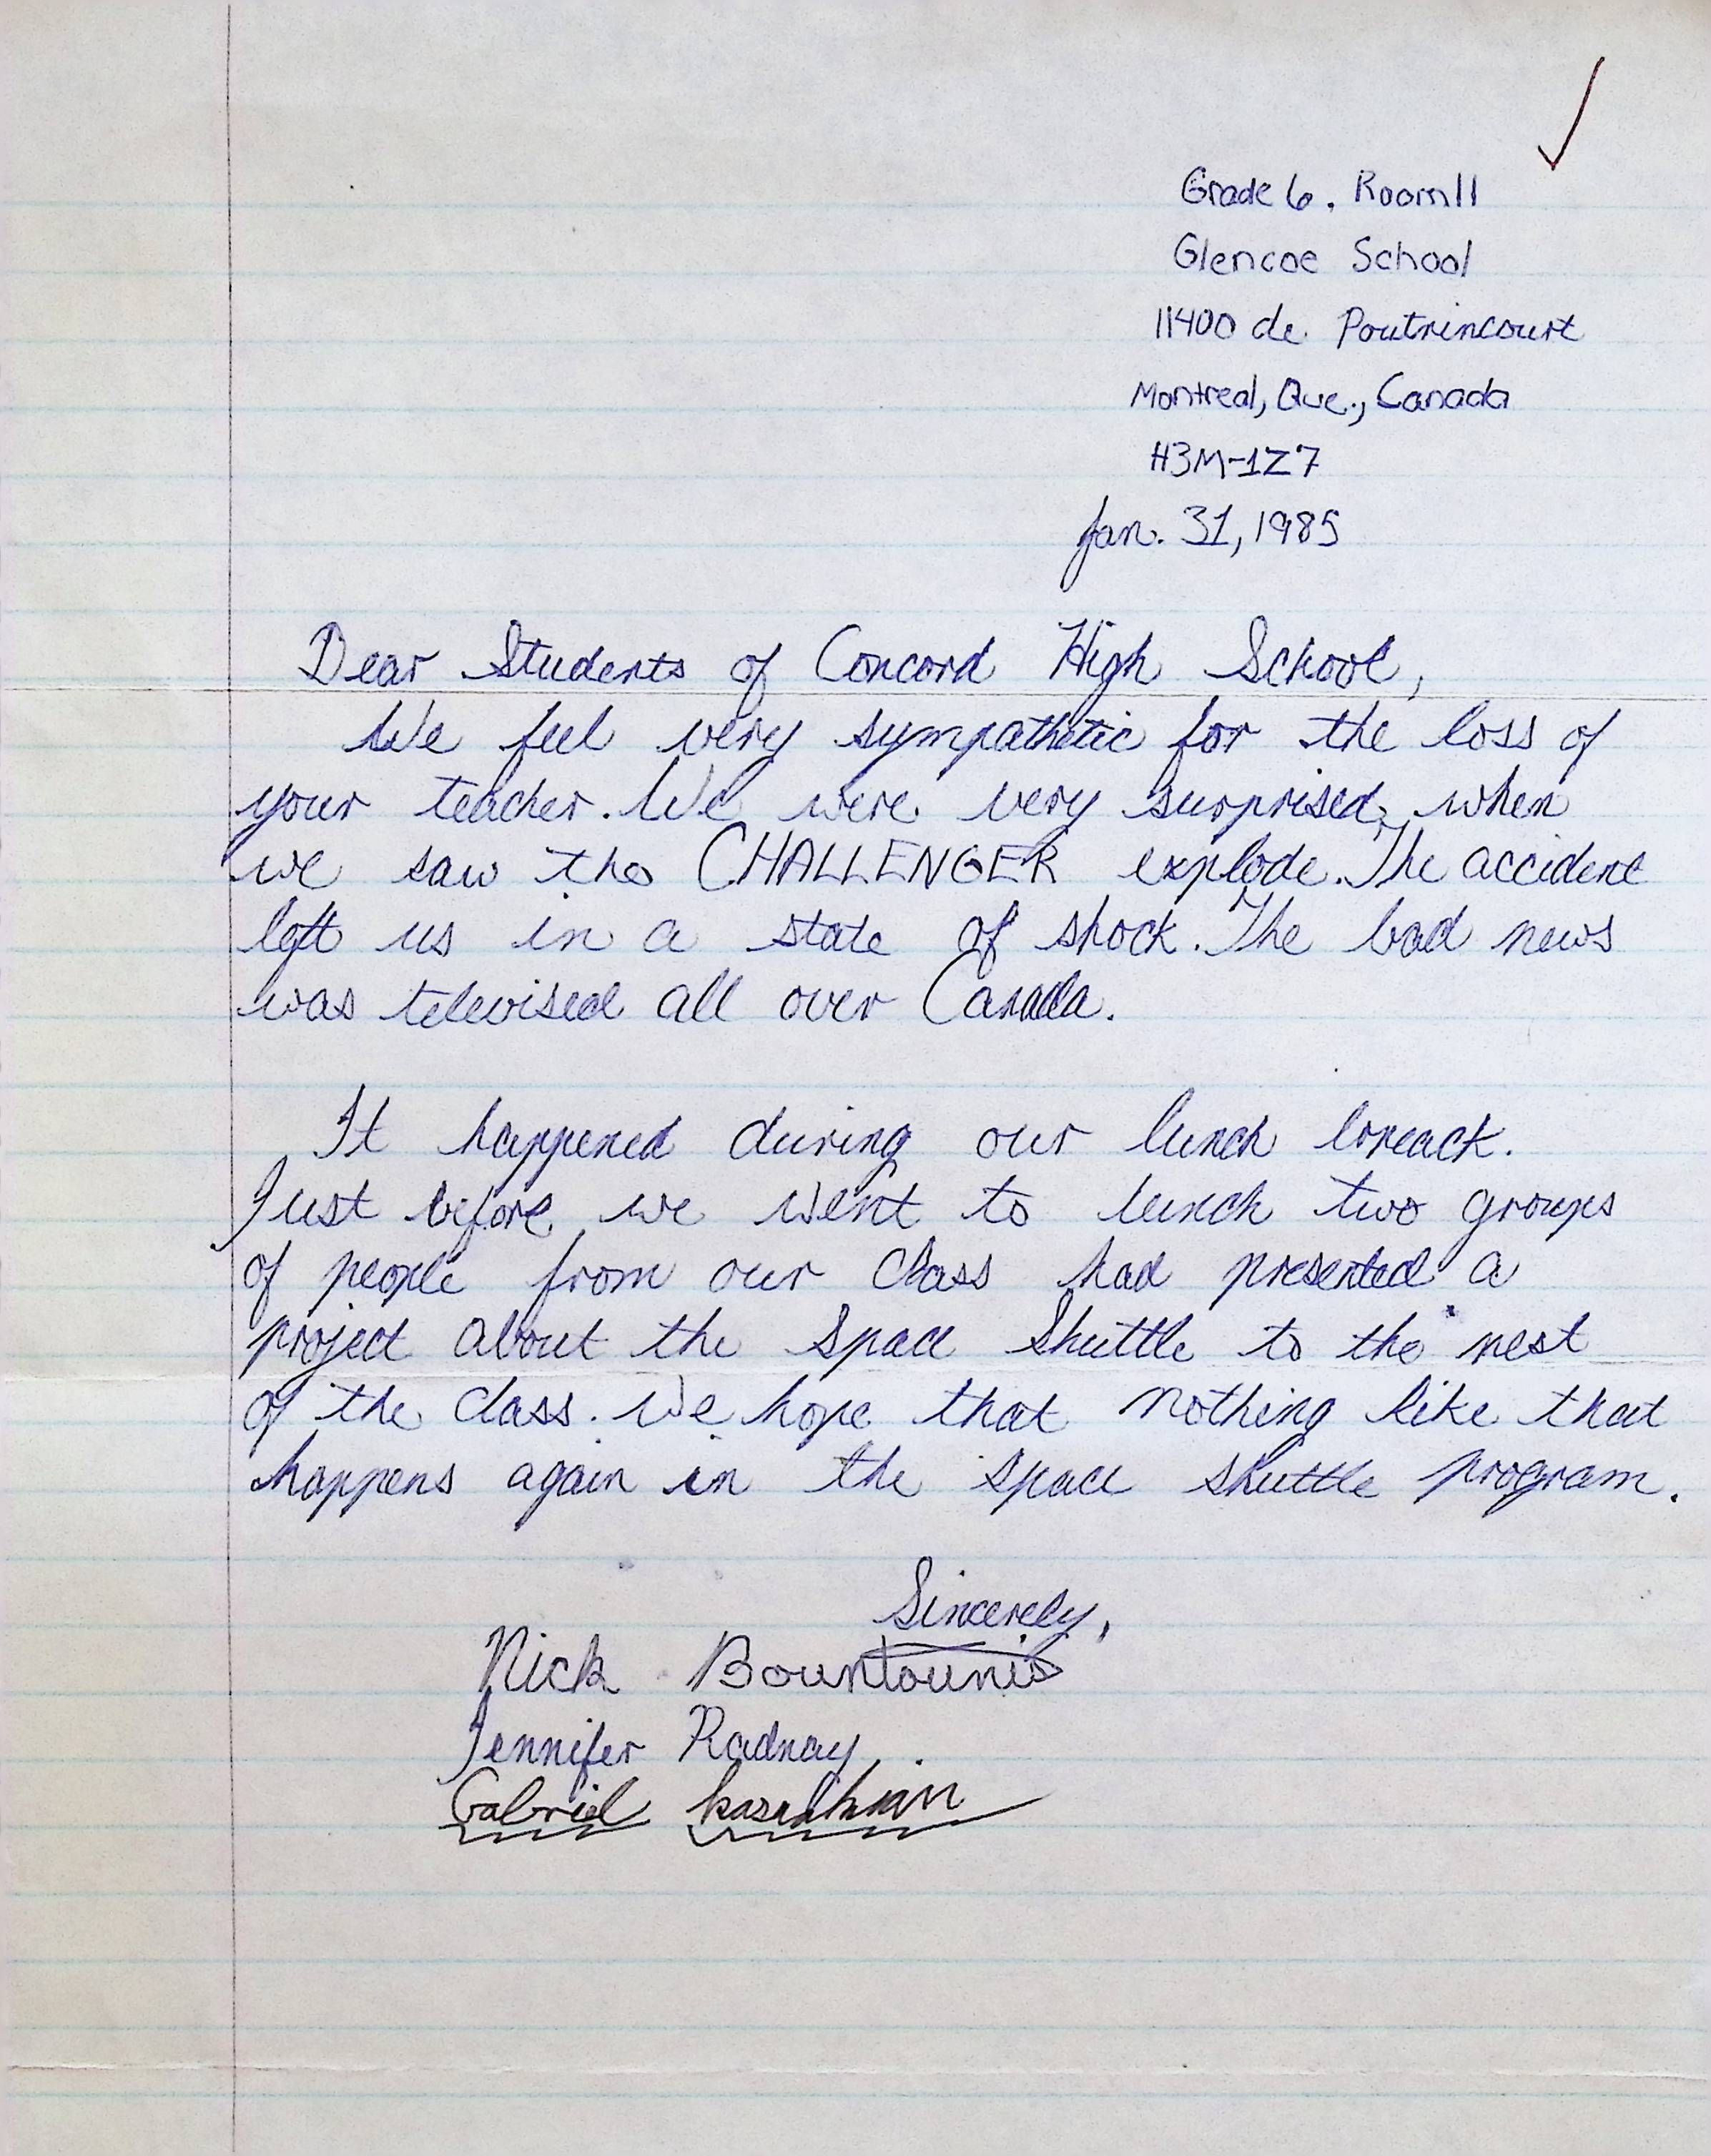 Grade 6, Room 11
Glencoe School
11400 de Poutrincourt
Montreal, Que., Canada
H3M-1Z7
Jan. 31, 1985
Dear Students of Concord High School,
We feel very sympathetic for the loss of
your teacher. We were very surprised when
we saw the CHALLENGER explode. The accident
left us in a state of shock. The bad news
was televised all over Canada.
It happened during our lunch breack.
Just before we went to lunch two groups
of people from our class had presented a
project about the Space Shuttle to the rest
of the class. We hope that nothing like that
happens again in the space shuttle program.
Sincerely,
Nick Bountounis
Jennifer Radnay
Gabriel